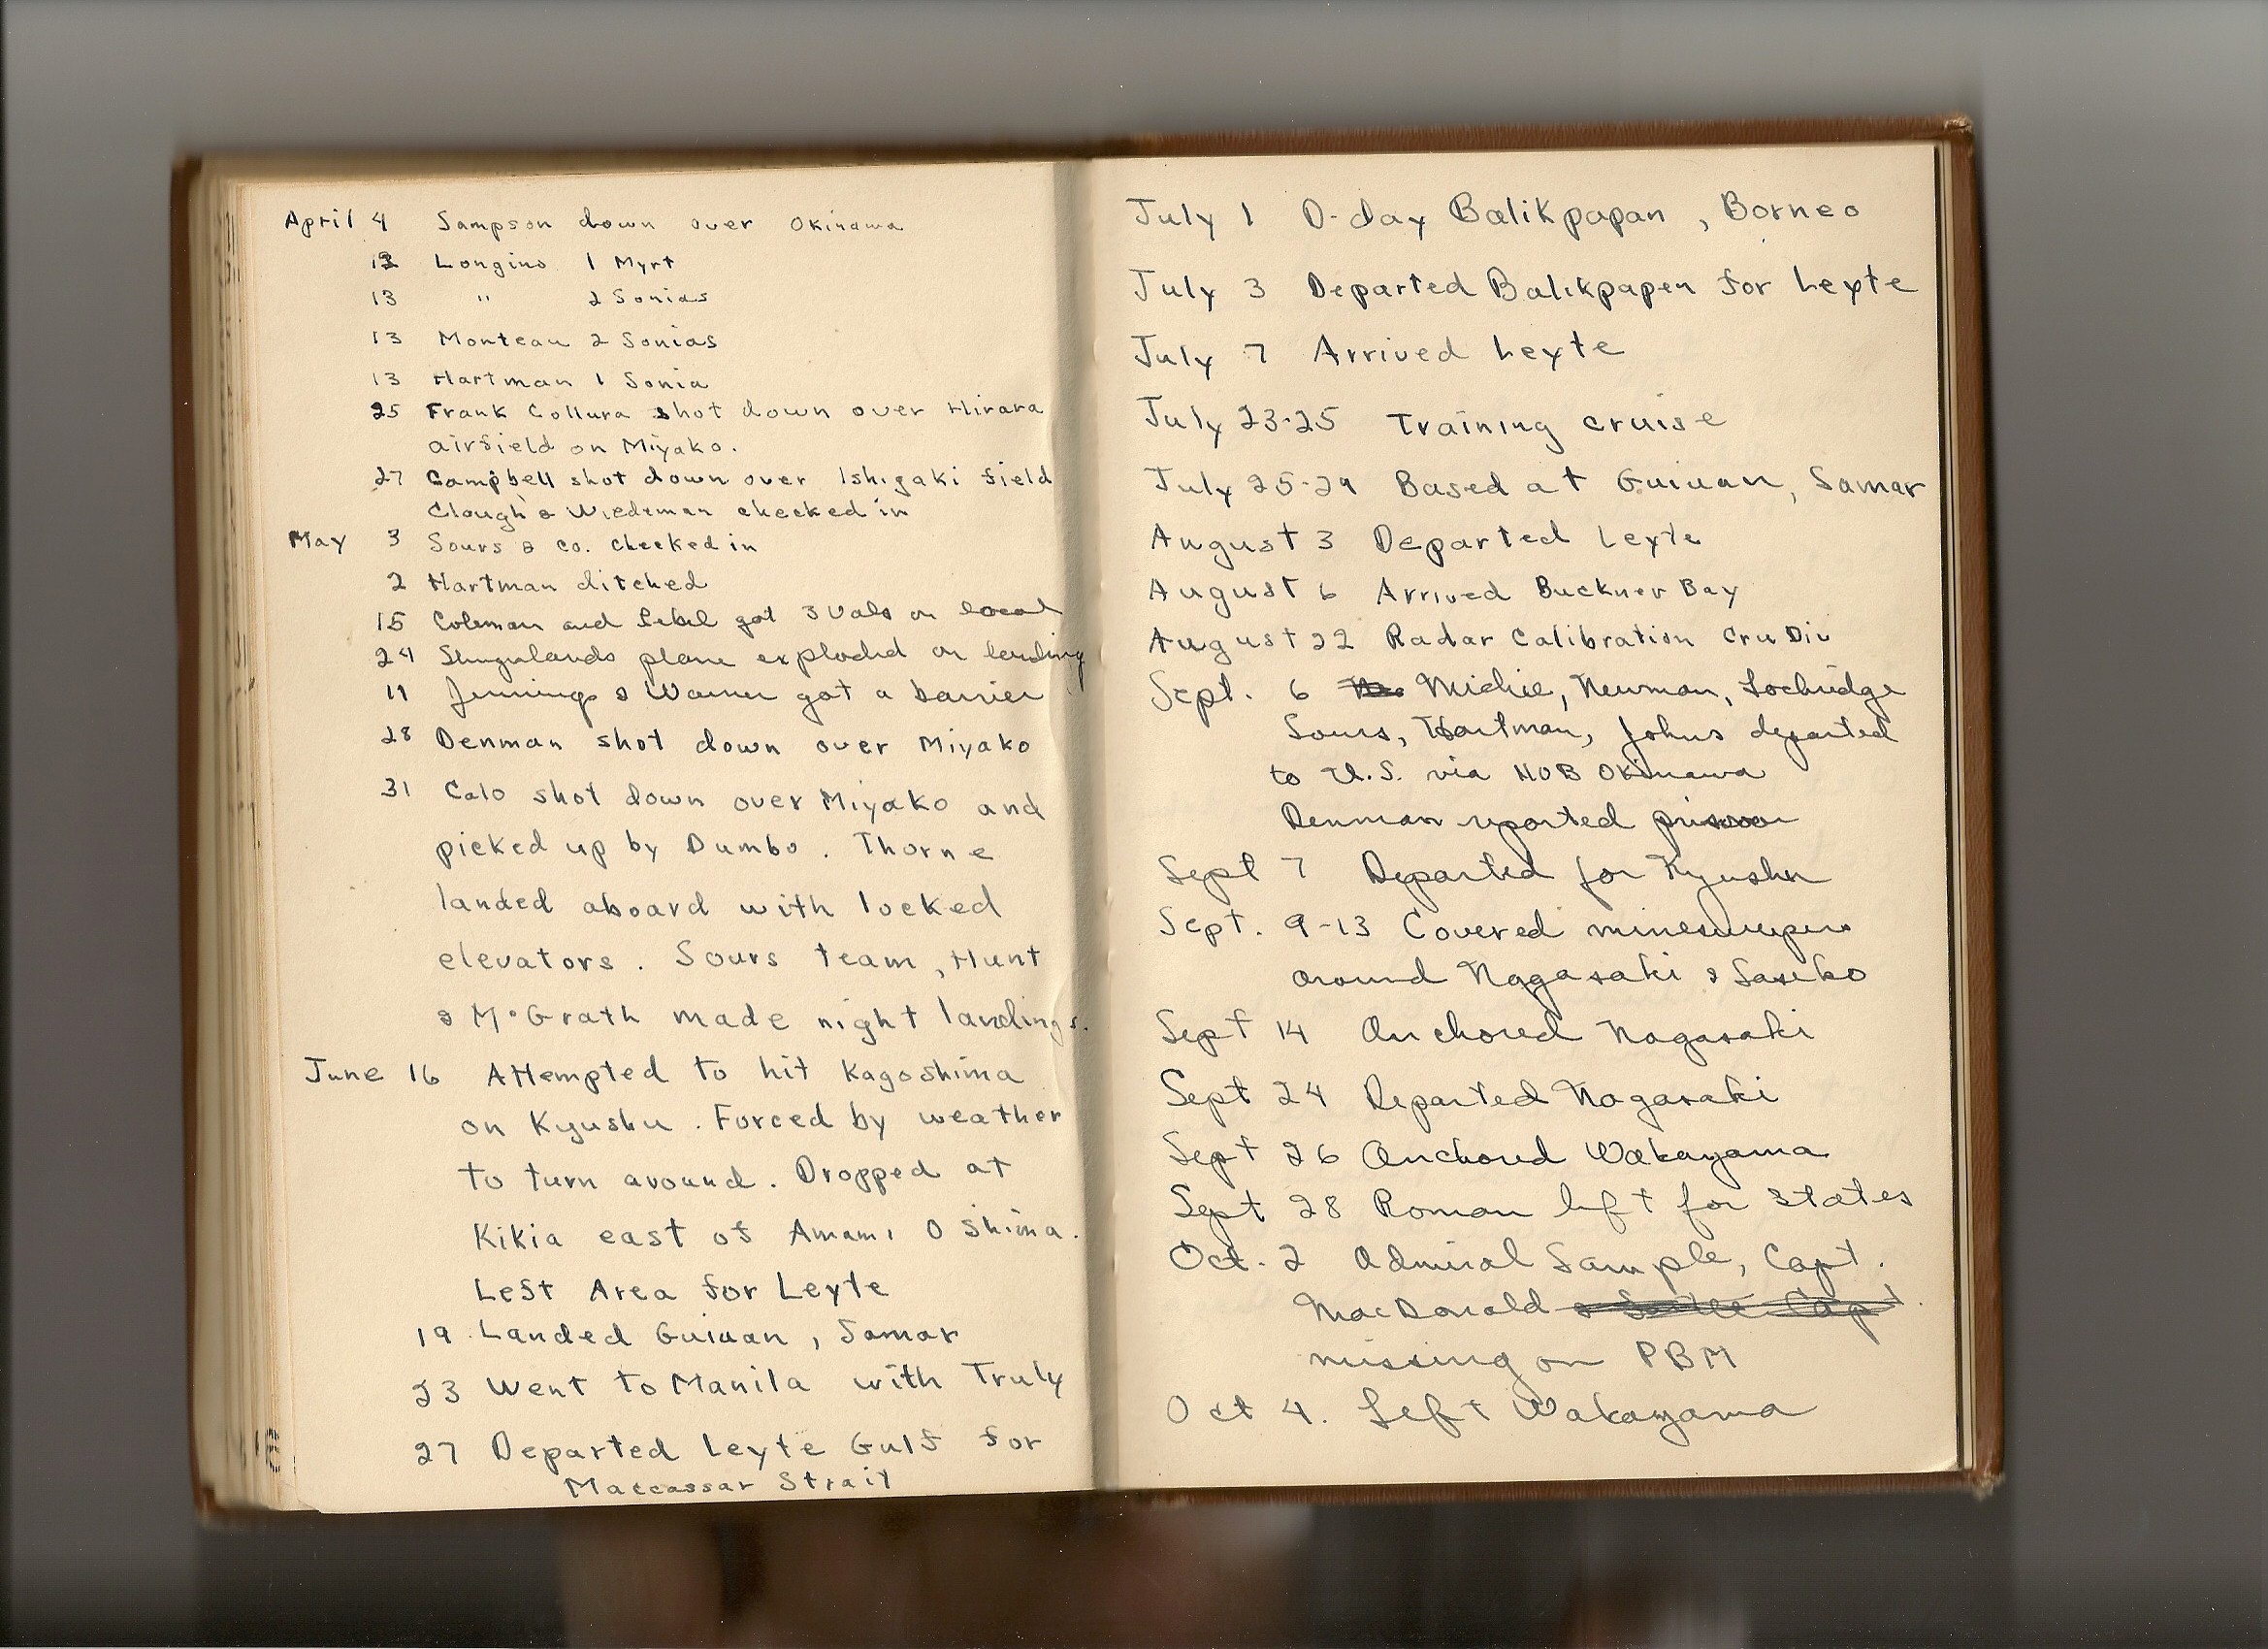 April 4 Sampson down over Okinawa
12 Longino 1 Myrt
13 " 2 Sonias
13 Monteau 2 Sonias
13 Hartman 1 Sonia
25 Frank Collura shot down over Hirara
airfield on Miyako.
27 Campbell shot down over Ishigaki field
Clough & Wiedeman checked in
May 3 Sours & co. checked in
2 Hartman ditched
15 Coleman and Lebel got 3 Vals on local
24 plane exploded on landing
11 Jennings & Warner got a barrier
28 Denman shot down over Miyako
31 Calo shot down over Miyako and
picked up by Dumbo. Thorne
landed aboard with locked
elevators. Sours team, Hunt
& McGrath made night landings.
June 16 Attempted to hit Kagoshima
on Kyushu. Forced by weather
to turn around. Dropped at
Kikia east of Amami O shima.
Left Area for Leyte
19 Landed Guiuan, Samar
23 Went to Manila with Truly
27 Departed Leyte Gulf for
Maccassar Strait
July 1 D-day Balikpapan, Borneo
July 3 Departed Balikpapen for Leyte
July 7 Arrived Leyte
July 23-25 Training cruise
July 25-29 Based at Guiuan, Samar
August 3 Departed Leyte
August 6 Arrived Buckner Bay
August 22 Radar Calibration Cru Div
Sept. 6 Michie, Newman, Lockridge
Sours, Hartman, Johns departed
to U.S. via NOB Okinawa
Denman reported prisoner
Sept 7 Departed for Kyushu
Sept. 9-13 Covered minesweepers
around Nagasaki & Sasebo
Sept 14 Anchored Nagasaki
Sept 24 Departed Nagasaki
Sept 26 Anchored Wakayama
Sept 28 Roman left for states
Oct. 2 Admiral Sample, Capt.
MacDonald
missing on PBM
Oct 4. Left Wakayama